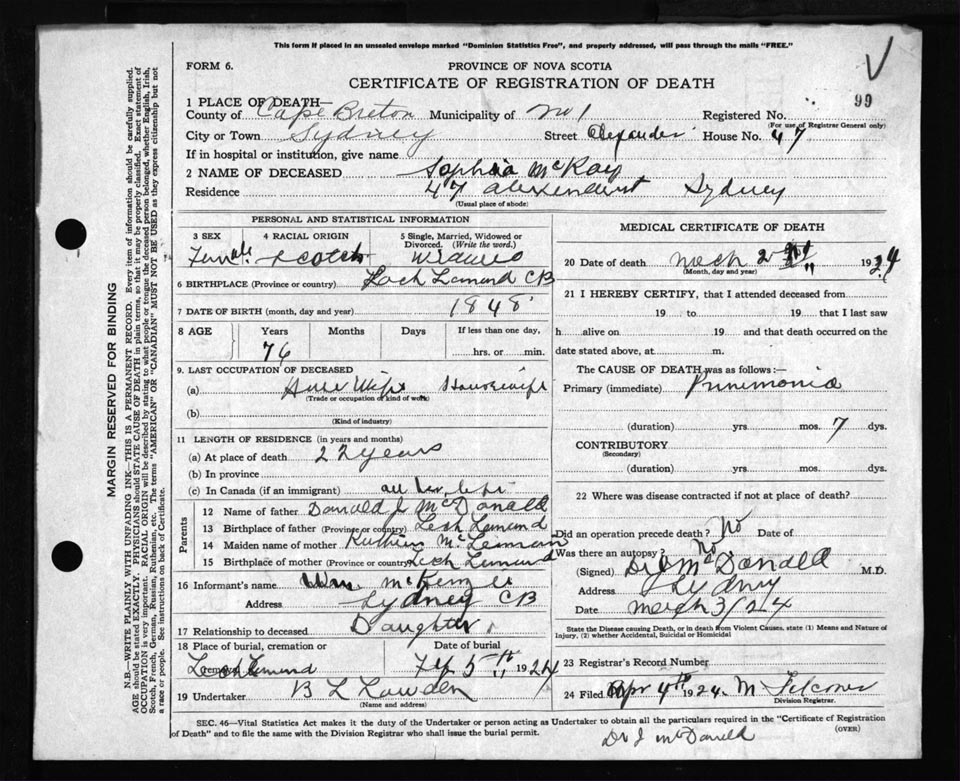 This form if placed in an unsealed envelope marked "Dominion Statistics Free", and properly addressed, will pass through the mails "FREE."
FORM 6.
PROVINCE OF NOVA SCOTIA
CERTIFICATE OF REGISTRATION OF DEATH
99
1 PLACE OF DEATH—
County of Cape Breton Municipality of No 1 Registered No.
(For use of Registrar General only)
City or Town Sydney Street Alexander House No. 47
If in hospital or institution, give name
2 NAME OF DECEASED Sophia McKay
Residence 47 Sydney
(Usual place of abode)
PERSONAL AND STATISTICAL INFORMATION
3 SEX 4 RACIAL ORIGIN 5 Single, Married, Widowed or Divorced. (Write the word.)
Female Scotch
6 BIRTHPLACE (Province or country) Loch Lomond CB
7 DATE OF BIRTH (month, day and year) 1848
8 AGE Years Months Days If less than one day,
76 hrs. or min.
9. LAST OCCUPATION OF DECEASED
(a) House Wife Housewife
(Trade or occupation or kind of work)
(b)
(Kind of industry)
11 LENGTH OF RESIDENCE (in years and months)
(a) At place of death 22 years
(b) In province
(c) In Canada (if an immigrant) all her life
Parents
12 Name of father Donald J McDonald
13 Birthplace of father (Province or country) Loch Lomond
14 Maiden name of mother
15 Birthplace of mother (Province or country) Loch Lomond
16 Informant's name McKenzie
Address Sydney CB
17 Relationship to deceased Daughter
18 Place of burial, cremation or Date of burial
Lomond 5th 1924
19 Undertaker B L
(Name and address)
MEDICAL CERTIFICATE OF DEATH
20 Date of death Mch 2nd 1924
(Month, day and year)
21 I HEREBY CERTIFY, that I attended deceased from
19 to 19 that I last saw
h alive on 19 and that death occurred on the
date stated above, at m.
The CAUSE OF DEATH was as follows:—
Primary (immediate) Pneumonia
(duration) yrs. mos. 7 dys.
CONTRIBUTORY
(Secondary)
(duration) yrs. mos. dys.
22 Where was disease contracted if not at place of death?
Did an operation precede death? No Date of
Was there an autopsy? No
(Signed) McDonald M.D.
Address Sydney
Date March 3/24
State the Disease causing Death, or in death from Violent Causes, state (1) Means and Nature of Injury, (2) whether Accidental, Suicidal or Homicidal
23 Registrar's Record Number
24 Filed Apr 4th 1924
Division Registrar.
SEC. 46—Vital Statistics Act makes it the duty of the Undertaker or person acting as Undertaker to obtain all the particulars required in the "Certificate of Registration
of Death" and to file the same with the Division Registrar who shall issue the burial permit. (OVER)
Dr J McDonald
MARGIN RESERVED FOR BINDING
N.B.—WRITE PLAINLY WITH UNFADING INK—THIS IS A PERMANENT RECORD. Every item of information should be carefully supplied.
AGE should be stated EXACTLY. PHYSICIANS should STATE CAUSE OF DEATH in plain terms, so that it may be properly classified. Exact statement of
OCCUPATION is very important. RACIAL ORIGIN will be described by stating to what people or tongue the deceased person belonged, whether English, Irish,
Scotch, French, German, Russian, Ruthenian, etc. The terms "AMERICAN" OR "CANADIAN" MUST NOT BE USED as they express citizenship but not
a race or people. See instructions on back of Certificate.